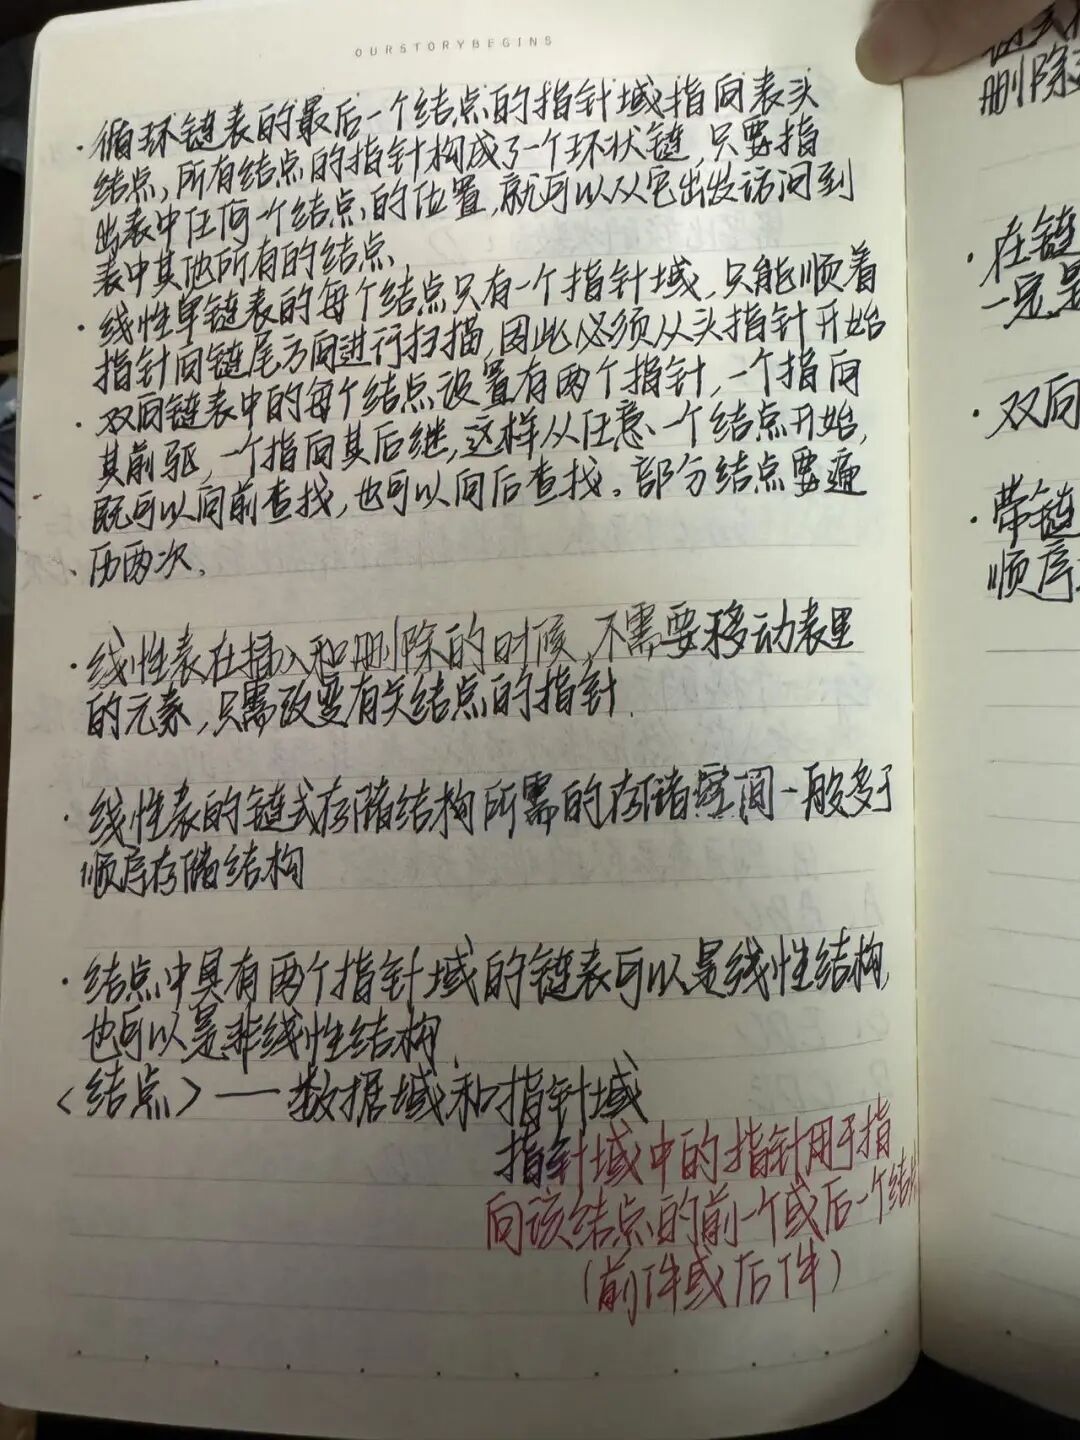 OURSTORYBEGINS
·循环链表的最后一个结点的指针域指向表头
结点,所有结点的指针构成了一个环状链,只要指
出表中任何一个结点的位置,就可以从它出发访问到
表中其他所有的结点、
·线性单链表的每个结点只有一个指针域,只能顺着
指针向链尾方向进行扫描,因此必须从头指针开始
·双向链表中的每个结点设置有两个指针,一个指向
其前驱,一个指向其后继,这样从任意一个结点开始,
既可以向前查找,也可以向后查找。部分结点要遍
·历两次、
·线性表在插入和删除的时候,不需要移动表里
的元素,只需改变有关结点的指针.
·线性表的链式存储结构所需的存储空间一般多于
顺序存储结构
·结点中具有两个指针域的链表可以是线性结构,
也可以是非线性结构.
<结点>——数据域和指针域
指针域中的指针用于指
向该结点的前一个或后一个结点
(前件或后件)
删除
·在链
一定是
·双向
·带链
顺序